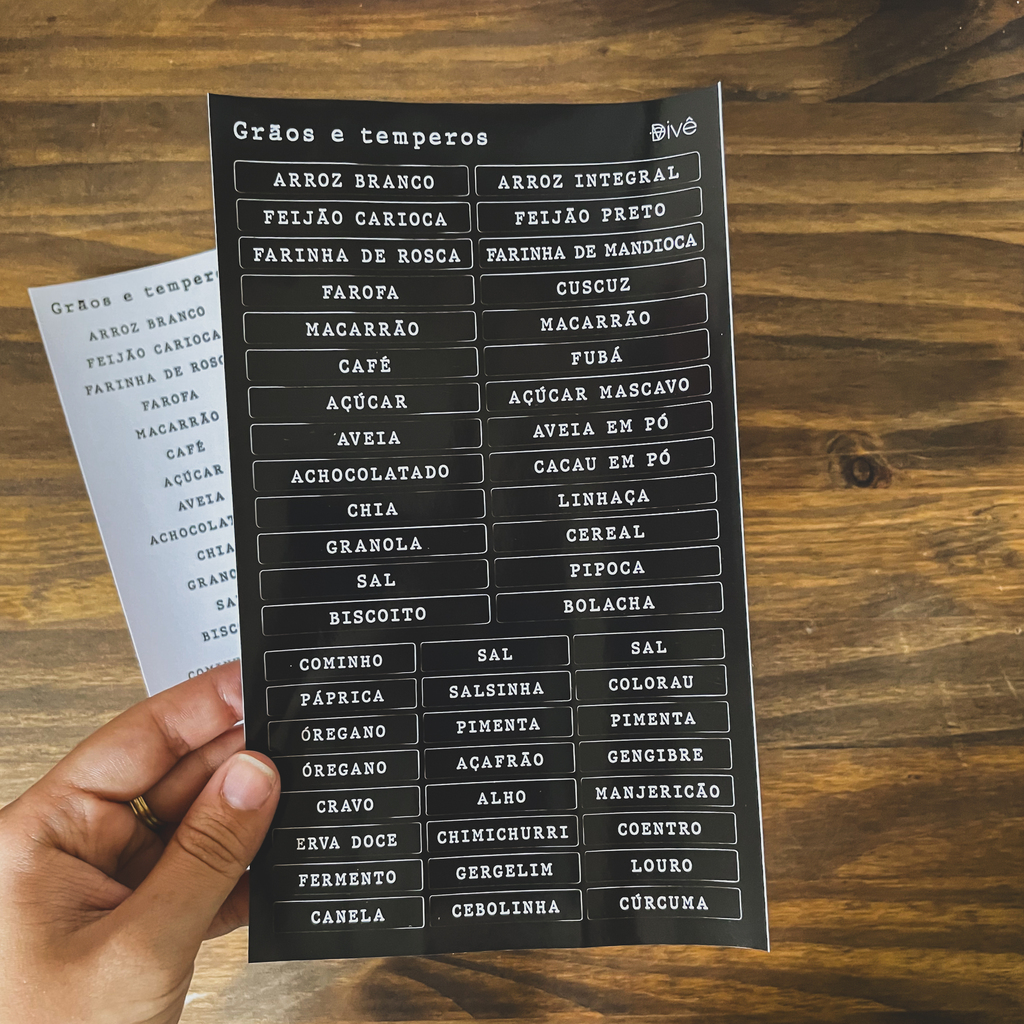 Grãos e temperos Divê
ARROZ BRANCO ARROZ INTEGRAL
FEIJÃO CARIOCA FEIJÃO PRETO
FARINHA DE ROSCA FARINHA DE MANDIOCA
FAROFA CUSCUZ
MACARRÃO MACARRÃO
CAFÉ FUBÁ
AÇÚCAR AÇÚCAR MASCAVO
AVEIA AVEIA EM PÓ
ACHOCOLATADO CACAU EM PÓ
CHIA LINHAÇA
GRANOLA CEREAL
SAL PIPOCA
BISCOITO BOLACHA
COMINHO SAL SAL
PÁPRICA SALSINHA COLORAU
ÓREGANO PIMENTA PIMENTA
ÓREGANO AÇAFRÃO GENGIBRE
CRAVO ALHO MANJERICÃO
ERVA DOCE CHIMICHURRI COENTRO
FERMENTO GERGELIM LOURO
CANELA CEBOLINHA CÚRCUMA
Grãos e temper
ARROZ BRANCO
FEIJÃO CARIOCA
FARINHA DE ROSC
FAROFA
MACARRÃO
CAFÉ
AÇÚCAR
AVEIA
ACHOCOLAT
CHIA
GRANO
SA
BISC